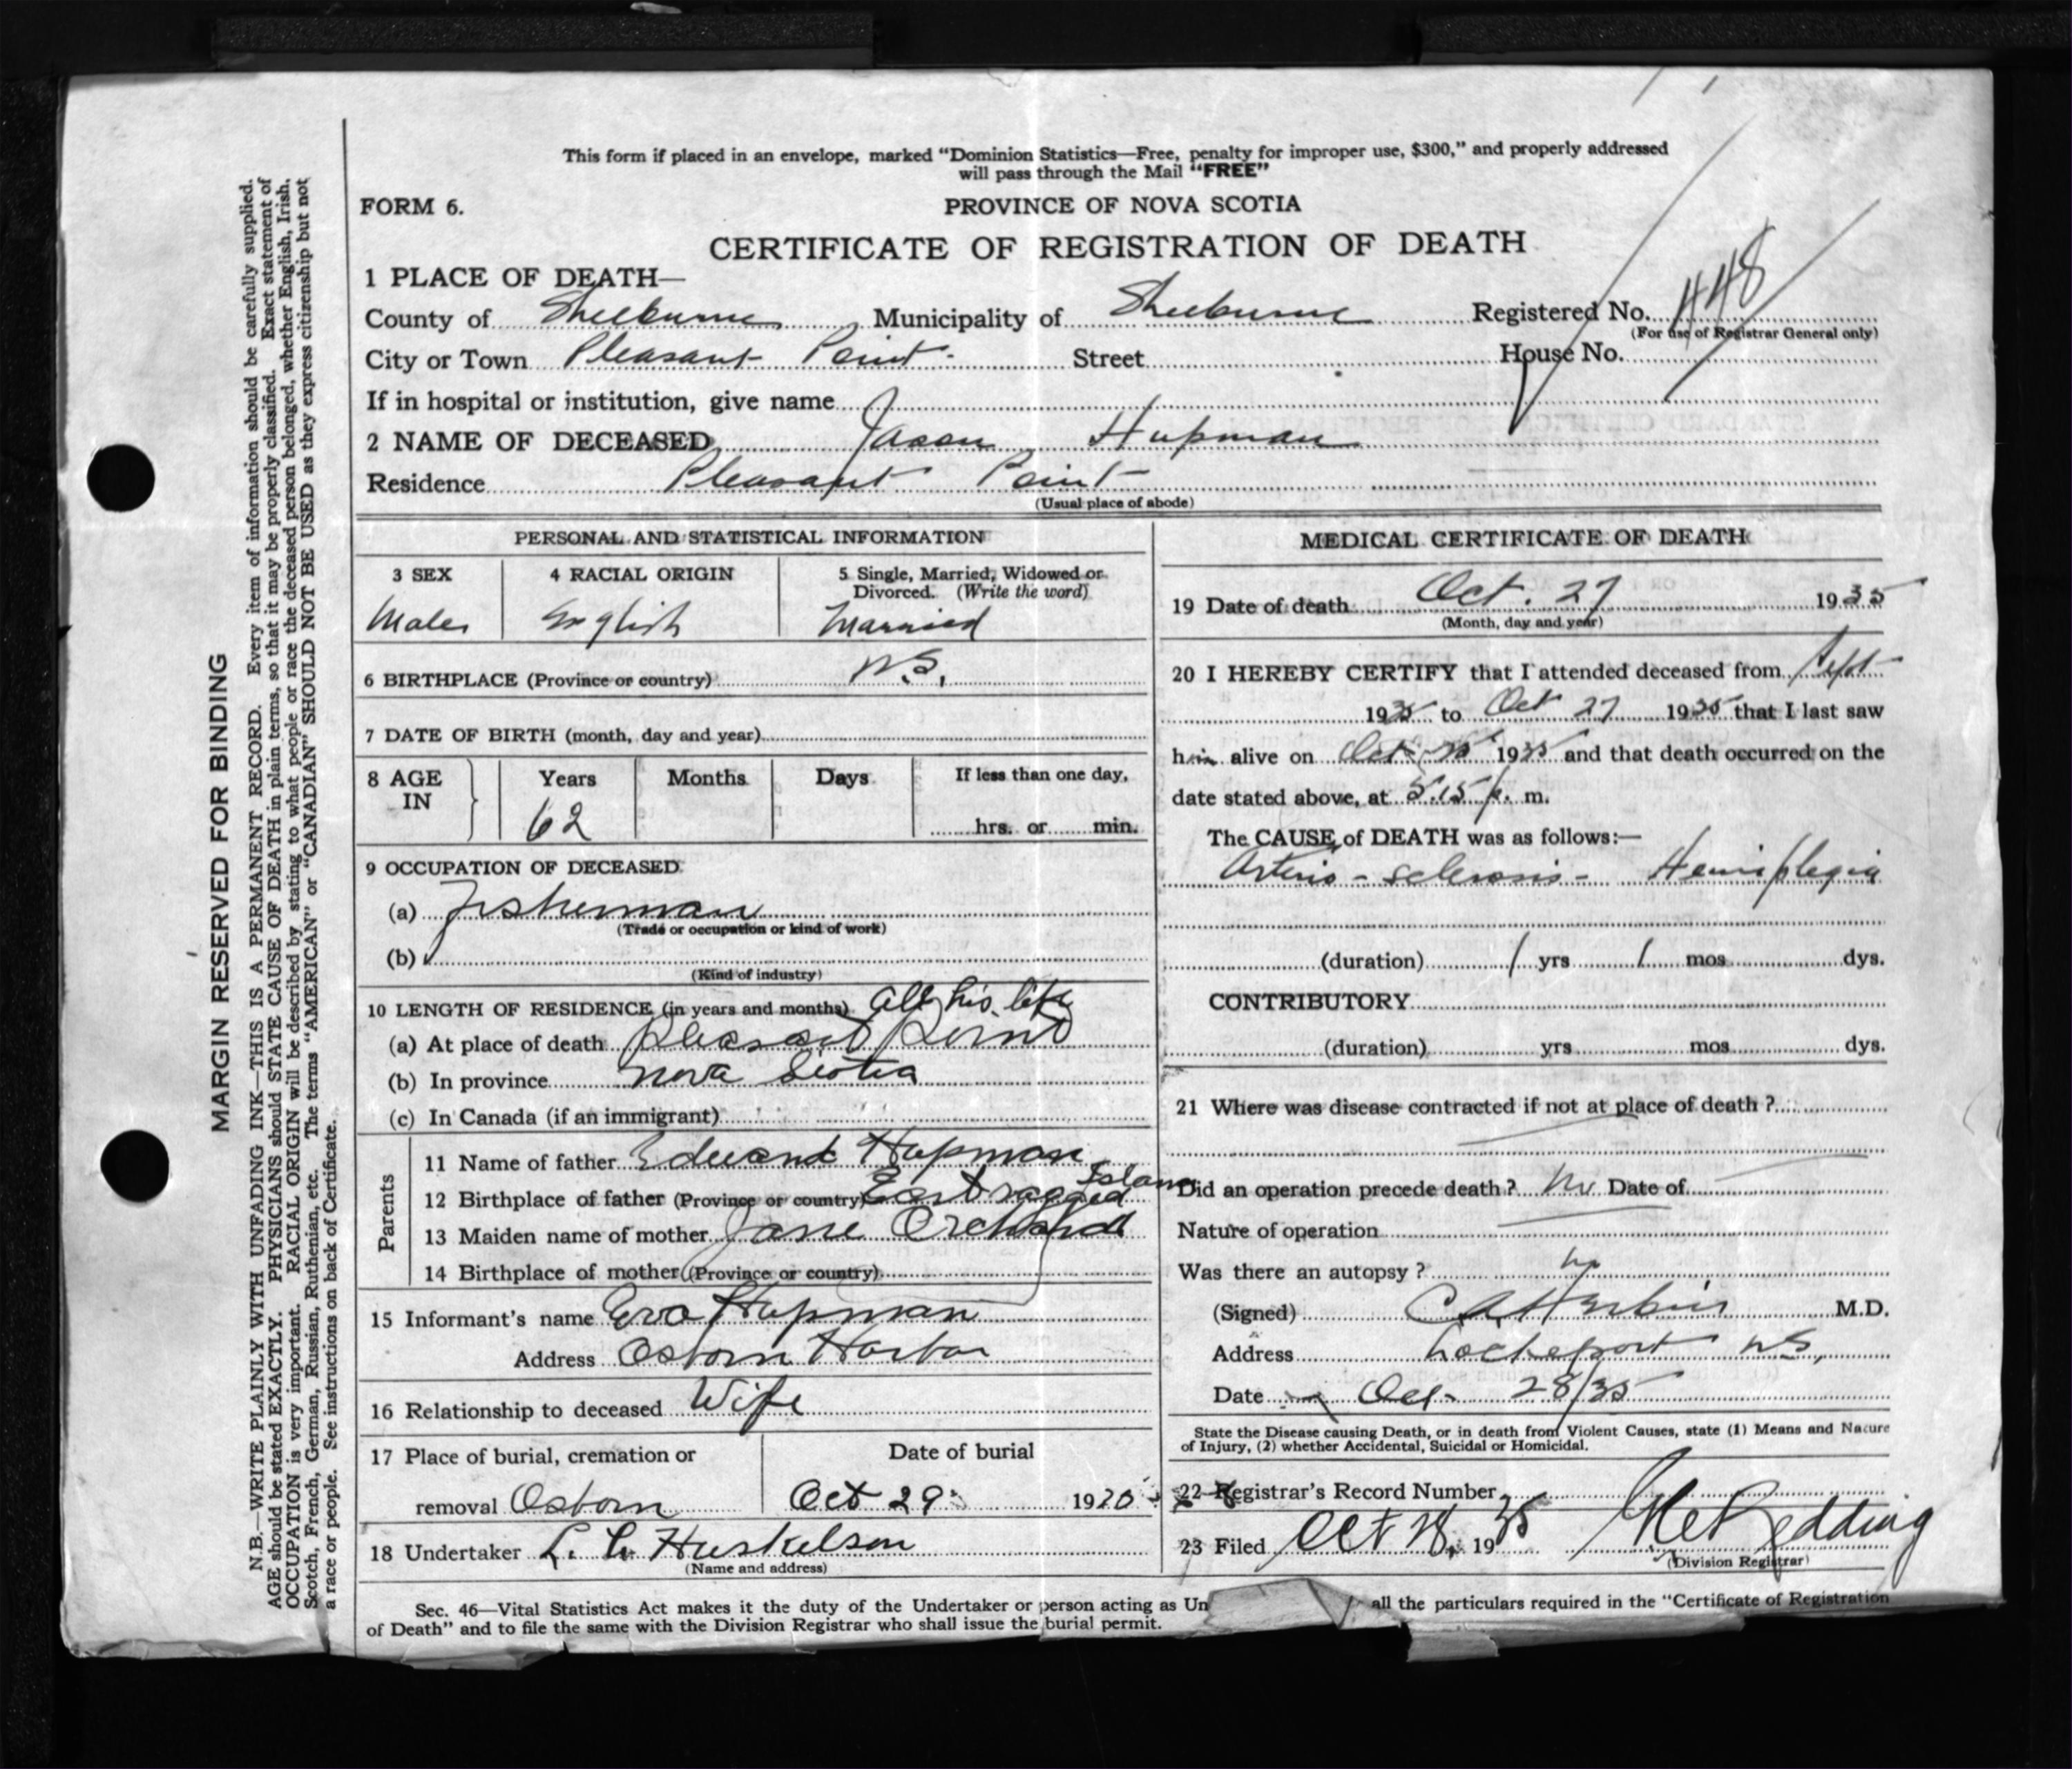 This form if placed in an envelope, marked "Dominion Statistics—Free, penalty for improper use, $300," and properly addressed
will pass through the Mail "FREE"
FORM 6.
PROVINCE OF NOVA SCOTIA
CERTIFICATE OF REGISTRATION OF DEATH
1 PLACE OF DEATH—
County of Shelburne Municipality of Shelburne Registered No. 448
(For use of Registrar General only)
City or Town Pleasant Point Street House No.
If in hospital or institution, give name
2 NAME OF DECEASED Jason Hupman
Residence Pleasant Point
(Usual place of abode)
PERSONAL AND STATISTICAL INFORMATION
3 SEX 4 RACIAL ORIGIN 5 Single, Married, Widowed or
Divorced. (Write the word)
Male English Married
6 BIRTHPLACE (Province or country) N.S.
7 DATE OF BIRTH (month, day and year)
8 AGE IN Years Months Days If less than one day,
62 hrs. or min.
9 OCCUPATION OF DECEASED
(a) Fisherman
(Trade or occupation or kind of work)
(b)
(Kind of industry)
10 LENGTH OF RESIDENCE (in years and months) all his life
(a) At place of death Pleasant Point
(b) In province Nova Scotia
(c) In Canada (if an immigrant)
Parents
11 Name of father Edward Hupman
12 Birthplace of father (Province or country) East ragged Island
13 Maiden name of mother Jane Orchard
14 Birthplace of mother (Province or country)
15 Informant's name Eva Hupman
Address Osborn Harbor
16 Relationship to deceased Wife
17 Place of burial, cremation or Date of burial
removal Osborn Oct 29 19
18 Undertaker L. C. Huskelson
(Name and address)
MEDICAL CERTIFICATE OF DEATH
19 Date of death Oct. 27 1935
(Month, day and year)
20 I HEREBY CERTIFY that I attended deceased from Sept
1935 to Oct 27 1935 that I last saw
him alive on Oct 1935 and that death occurred on the
date stated above, at 5.15 p. m.
The CAUSE of DEATH was as follows:—
Arterio-sclerosis - Hemiplegia
(duration) 1 yrs 1 mos dys.
CONTRIBUTORY
(duration) yrs mos dys.
21 Where was disease contracted if not at place of death ?
Did an operation precede death ? No Date of
Nature of operation
Was there an autopsy ? no
(Signed) M.D.
Address Lockeport N.S.
Date Oct - 28/35
State the Disease causing Death, or in death from Violent Causes, state (1) Means and Nature
of Injury, (2) whether Accidental, Suicidal or Homicidal.
22 Registrar's Record Number
23 Filed Oct 28, 1935 Redding
(Division Registrar)
Sec. 46—Vital Statistics Act makes it the duty of the Undertaker or person acting as Un all the particulars required in the "Certificate of Registration
of Death" and to file the same with the Division Registrar who shall issue the burial permit.
MARGIN RESERVED FOR BINDING
N.B.—WRITE PLAINLY WITH UNFADING INK—THIS IS A PERMANENT RECORD. Every item of information should be carefully supplied.
AGE should be stated EXACTLY. PHYSICIANS should STATE CAUSE OF DEATH in plain terms, so that it may be properly classified. Exact statement of
OCCUPATION is very important. RACIAL ORIGIN will be described by stating to what people or race the deceased person belonged, whether English, Irish,
Scotch, French, German, Russian, Ruthenian, etc. The terms "AMERICAN" or "CANADIAN" SHOULD NOT BE USED as they express citizenship but not
a race or people. See instructions on back of Certificate.